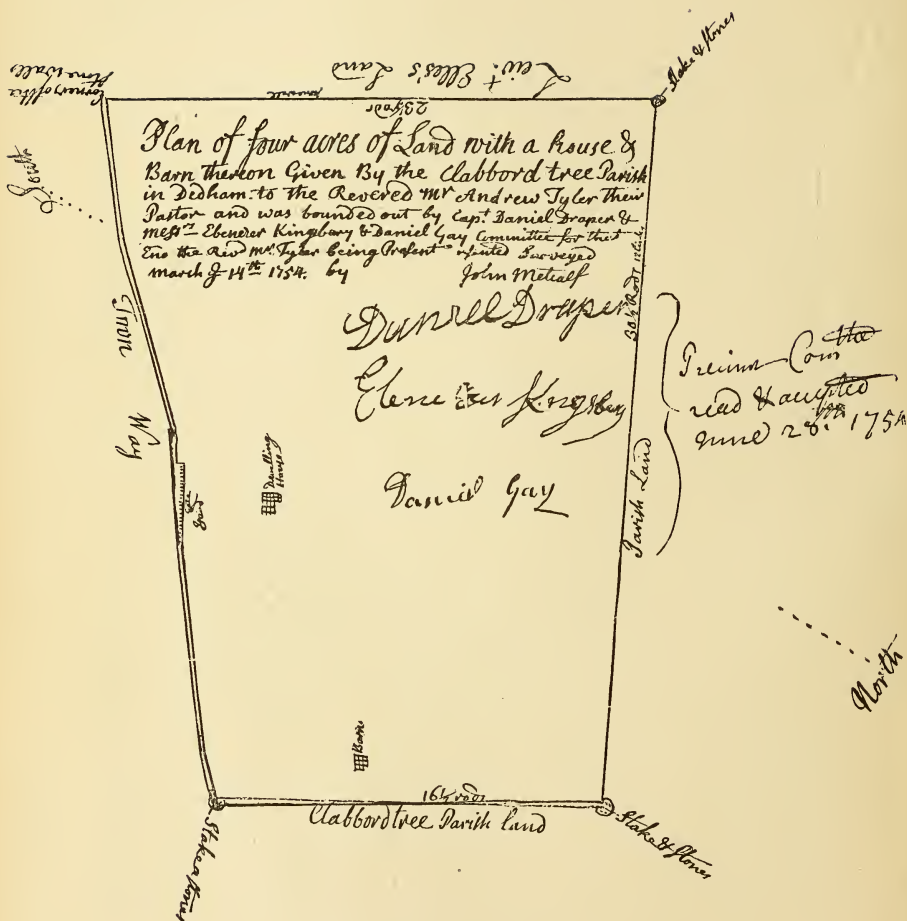 Corner of the
Stone Walls
Leiut Elles's Land
23½ rods
Stake & Stones
South
Plan of four acres of Land with a house &
Barn thereon Given By the Clabbord tree Parish
in Dedham to the Revered Mr Andrew Tyler Their
Pastor and was bounded out by Capt. Daniel Draper &
Messrs Ebenezer Kingbery & Daniel Gay Committee for that
End the Revd Mr. Tyler being Present Surveyed
March ye 14th 1754. by John Metcalf
Daniell Draper
Ebenezer Kingsbery
Daniel Gay
Town
Way
Dwelling
House
30½ Rods 12 Links
Parish Land
Precinct Comtee
read & accepted
June 28th 1754
North
Barn
16½ rods
Clabbordtree Parish land
Stake & Stones
Stake & Stones